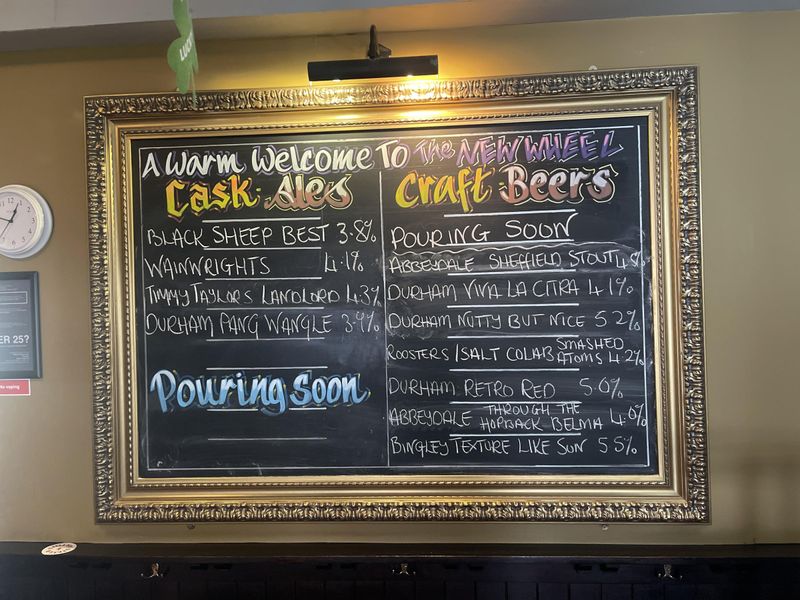 LUCKY
A Warm Welcome To The NEW WHEEL
Cask Ales
BLACK SHEEP BEST 3.8%
WAINWRIGHTS 4.1%
TIMMY TAYLORS LANDLORD 4.3%
DURHAM PANG WANGLE 3.9%
Pouring Soon
Craft Beers
POURING SOON
ABBEYDALE SHEFFIELD STOUT
DURHAM VIVA LA CITRA 4.1%
DURHAM NUTTY BUT NICE 5.2%
ROOSTERS/SALT COLAB SMASHED ATOMS 4.2%
DURHAM RETRO RED 5.0%
ABBEYDALE THROUGH THE HOPBACK BELMA 4.0%
BINGLEY TEXTURE LIKE SUN 5.5%
ER 25?
No vaping